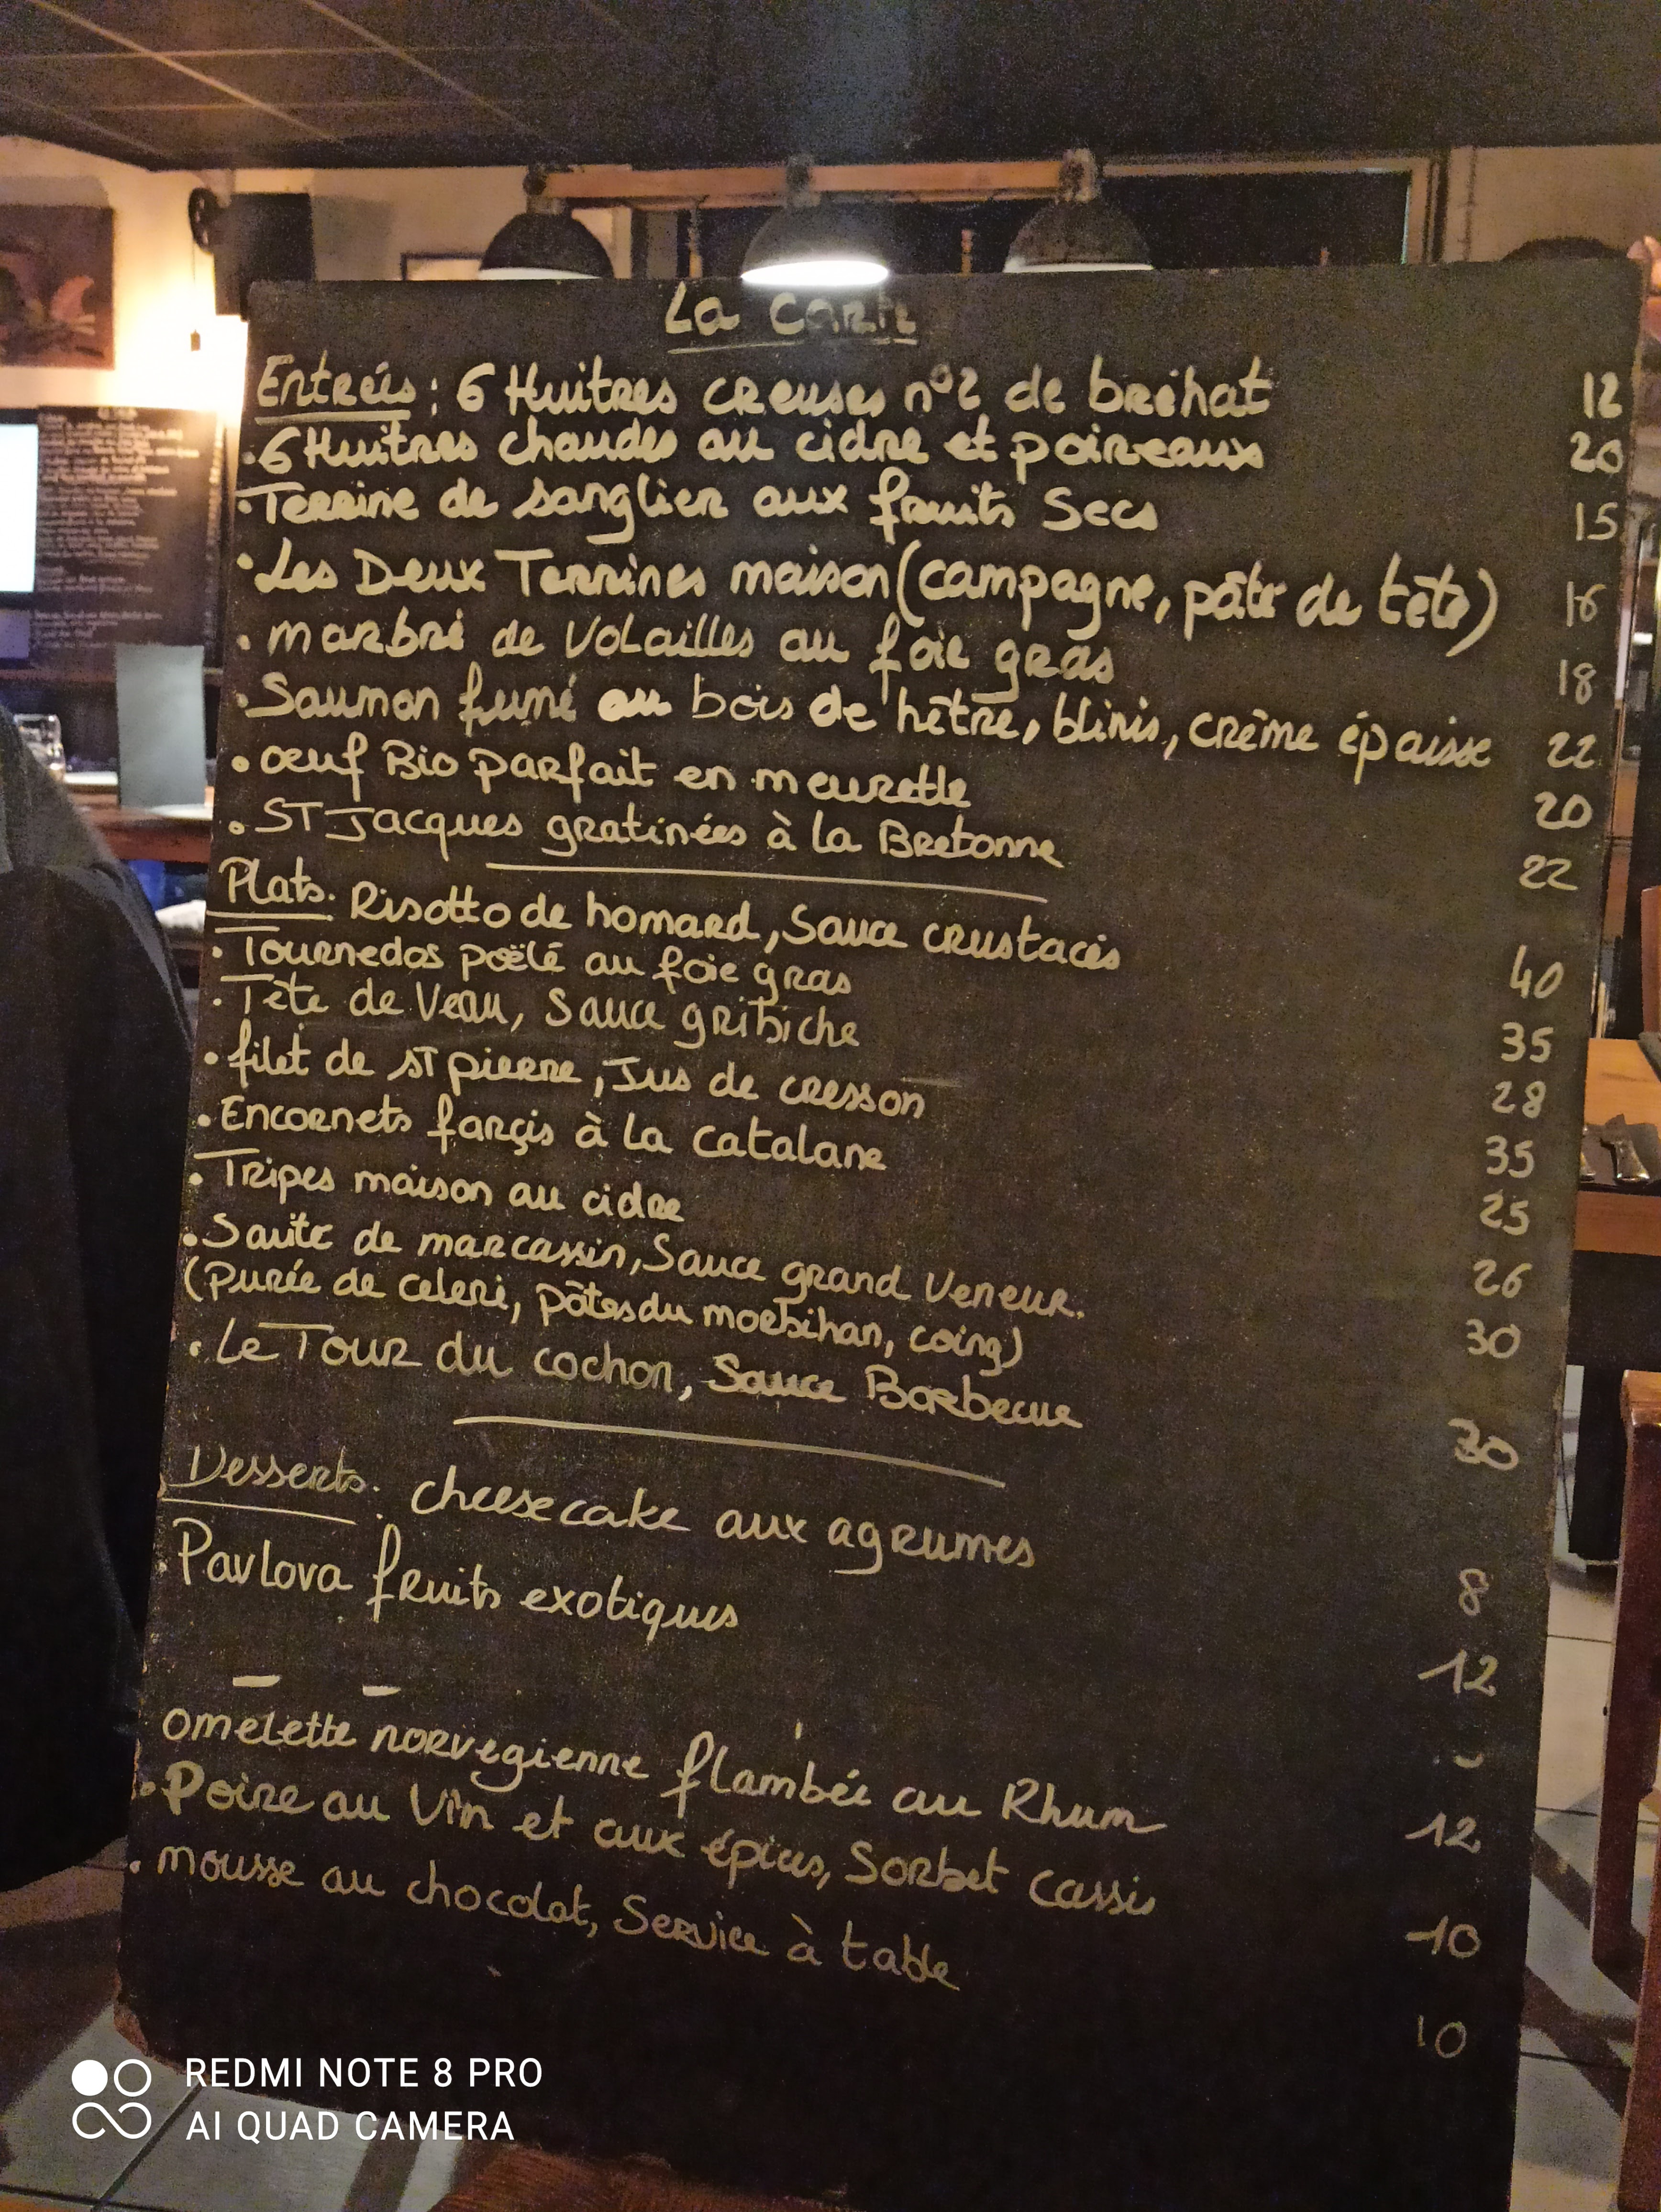 La Carte
Entrées : 6 Huitres creuses n°2 de brehat 12
. 6 Huitres chaudes au cidre et poireaux 20
. Terrine de sanglier aux fruits secs 15
. Les Deux Terrines maison (campagne, pâté de tête) 16
. marbré de Volailles au foie gras 18
. Saumon fumé au bois de hêtre, blinis, crème épaisse 22
. oeuf Bio parfait en meurette 20
. ST Jacques gratinées à la Bretonne 22
Plats. Risotto de homard, Sauce crustacés 40
. Tournedos poëlé au foie gras 35
. Tête de Veau, Sauce gribiche 28
. filet de ST pierre, Jus de cresson 35
. Encornets farçis à la catalane 25
. Tripes maison au cidre 26
. Sauté de marcassin, Sauce grand Veneur. 30
(purée de celeri, pâtes du morbihan, coing)
. Le Tour du cochon, Sauce Barbecue 30
Desserts. cheesecake aux agrumes 8
. Pavlova fruits exotiques 12
omelette norvegienne flambée au Rhum 12
. Poire au Vin et aux épices, Sorbet cassis 10
. mousse au chocolat, Service à table 10
REDMI NOTE 8 PRO
AI QUAD CAMERA